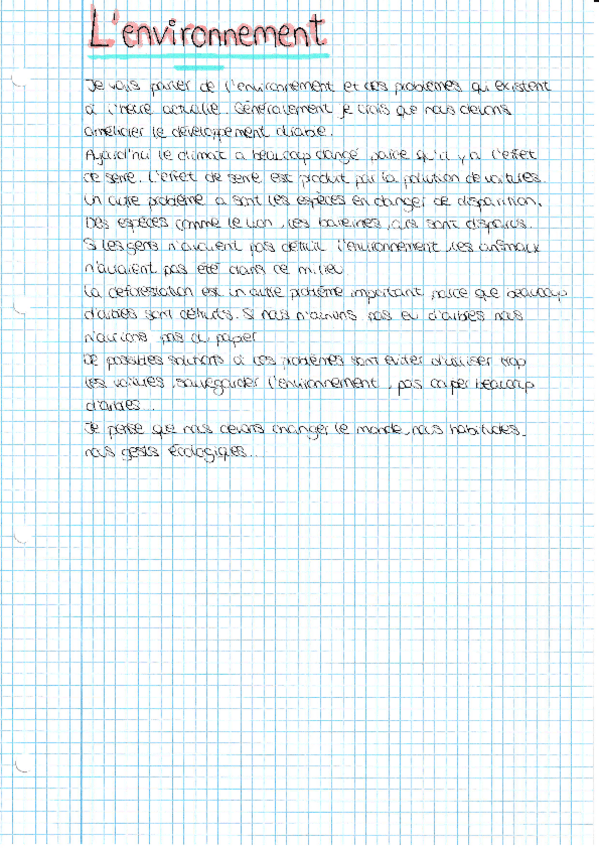 L'environnement
Je vais parler de l'environnement et des problèmes qui existent
à l'heure actuelle. Généralement je crois que nous devons
améliorer le développement durable.
Aujourd'hui le climat a beaucoup changé parce qu'il y a l'effet
de serre. L'effet de serre est produit par la polution de voitures.
un autre problème a sont les espèces en danger de disparition.
Des espèces comme le lion, les baleines, ours sont disparus.
Si les gens n'avaient pas détruit l'environnement, les animaux
n'auraient pas été dans ce milieu
La déforestation est un autre problème important, parce que beaucoup
d'arbres sont détruits. Si nous n'aurions pas eu d'arbres nous
n'aurions pas du papier
De possibles solutions à ces problèmes sont éviter d'utiliser trop
les voitures, sauvegarder l'environnement, pas couper beaucoup
d'arbres...
Je pense que nous devons changer le monde, nous habitudes,
nous gests écologiques...